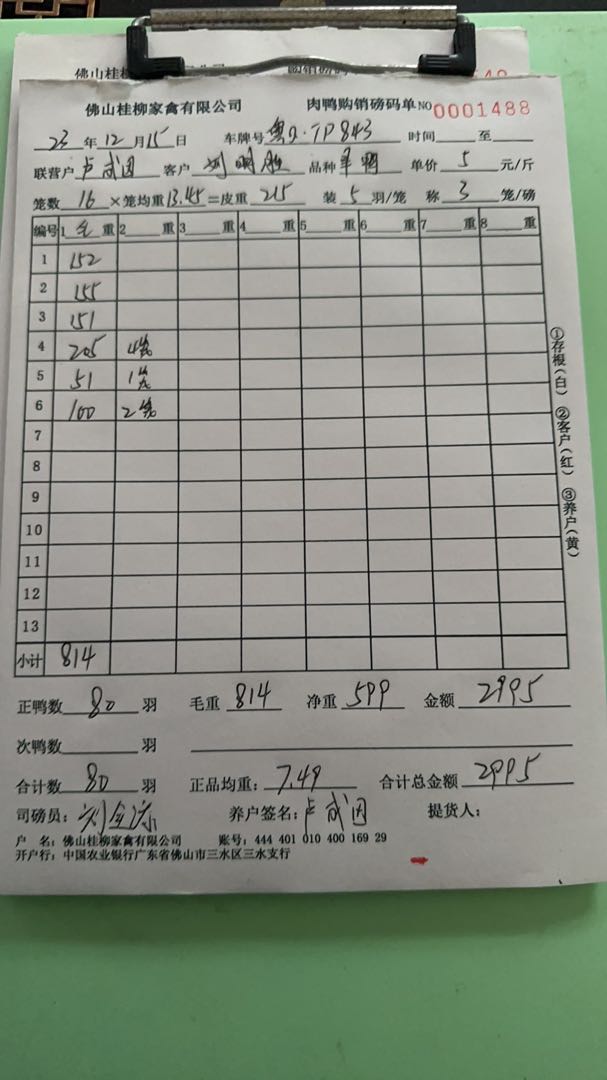 佛山桂柳家禽有限公司 肉鸭购销磅码单 NO 0001488
23 年 12 月 15 日 车牌号 粤Q·TP843 时间 至
联营户 卢成因 客户 刘明胜 品种 单价 5 元/斤
笼数 16 ×笼均重 13.45 =皮重 215 装 5 羽/笼 称 3 笼/磅
编号 1 毛 重 2 重 3 重 4 重 5 重 6 重 7 重 8 重
1 152
2 155
3 151
4 205 4笼
5 51 1笼
6 100 2笼
7
8
9
10
11
12
13
小计 814
①存根(白) ②客户(红) ③养户(黄)
正鸭数 80 羽 毛重 814 净重 599 金额 2995
次鸭数 羽
合计数 80 羽 正品均重: 7.49 合计总金额 2995
司磅员: 养户签名: 卢成因 提货人:
户 名: 佛山桂柳家禽有限公司 账号: 444 401 010 400 169 29
开户行: 中国农业银行广东省佛山市三水区三水支行